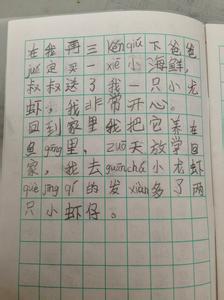 在我再三kěn qiú下爸爸
jué定买一xiē小海鲜，
叔叔送了我一只小龙
虾，我非常开心。
回到家里我把它养在
鱼gāng里，zuó天放学回
家，我去guān chá小龙虾
què jīng qí的发xiàn多了两
只小虾仔。